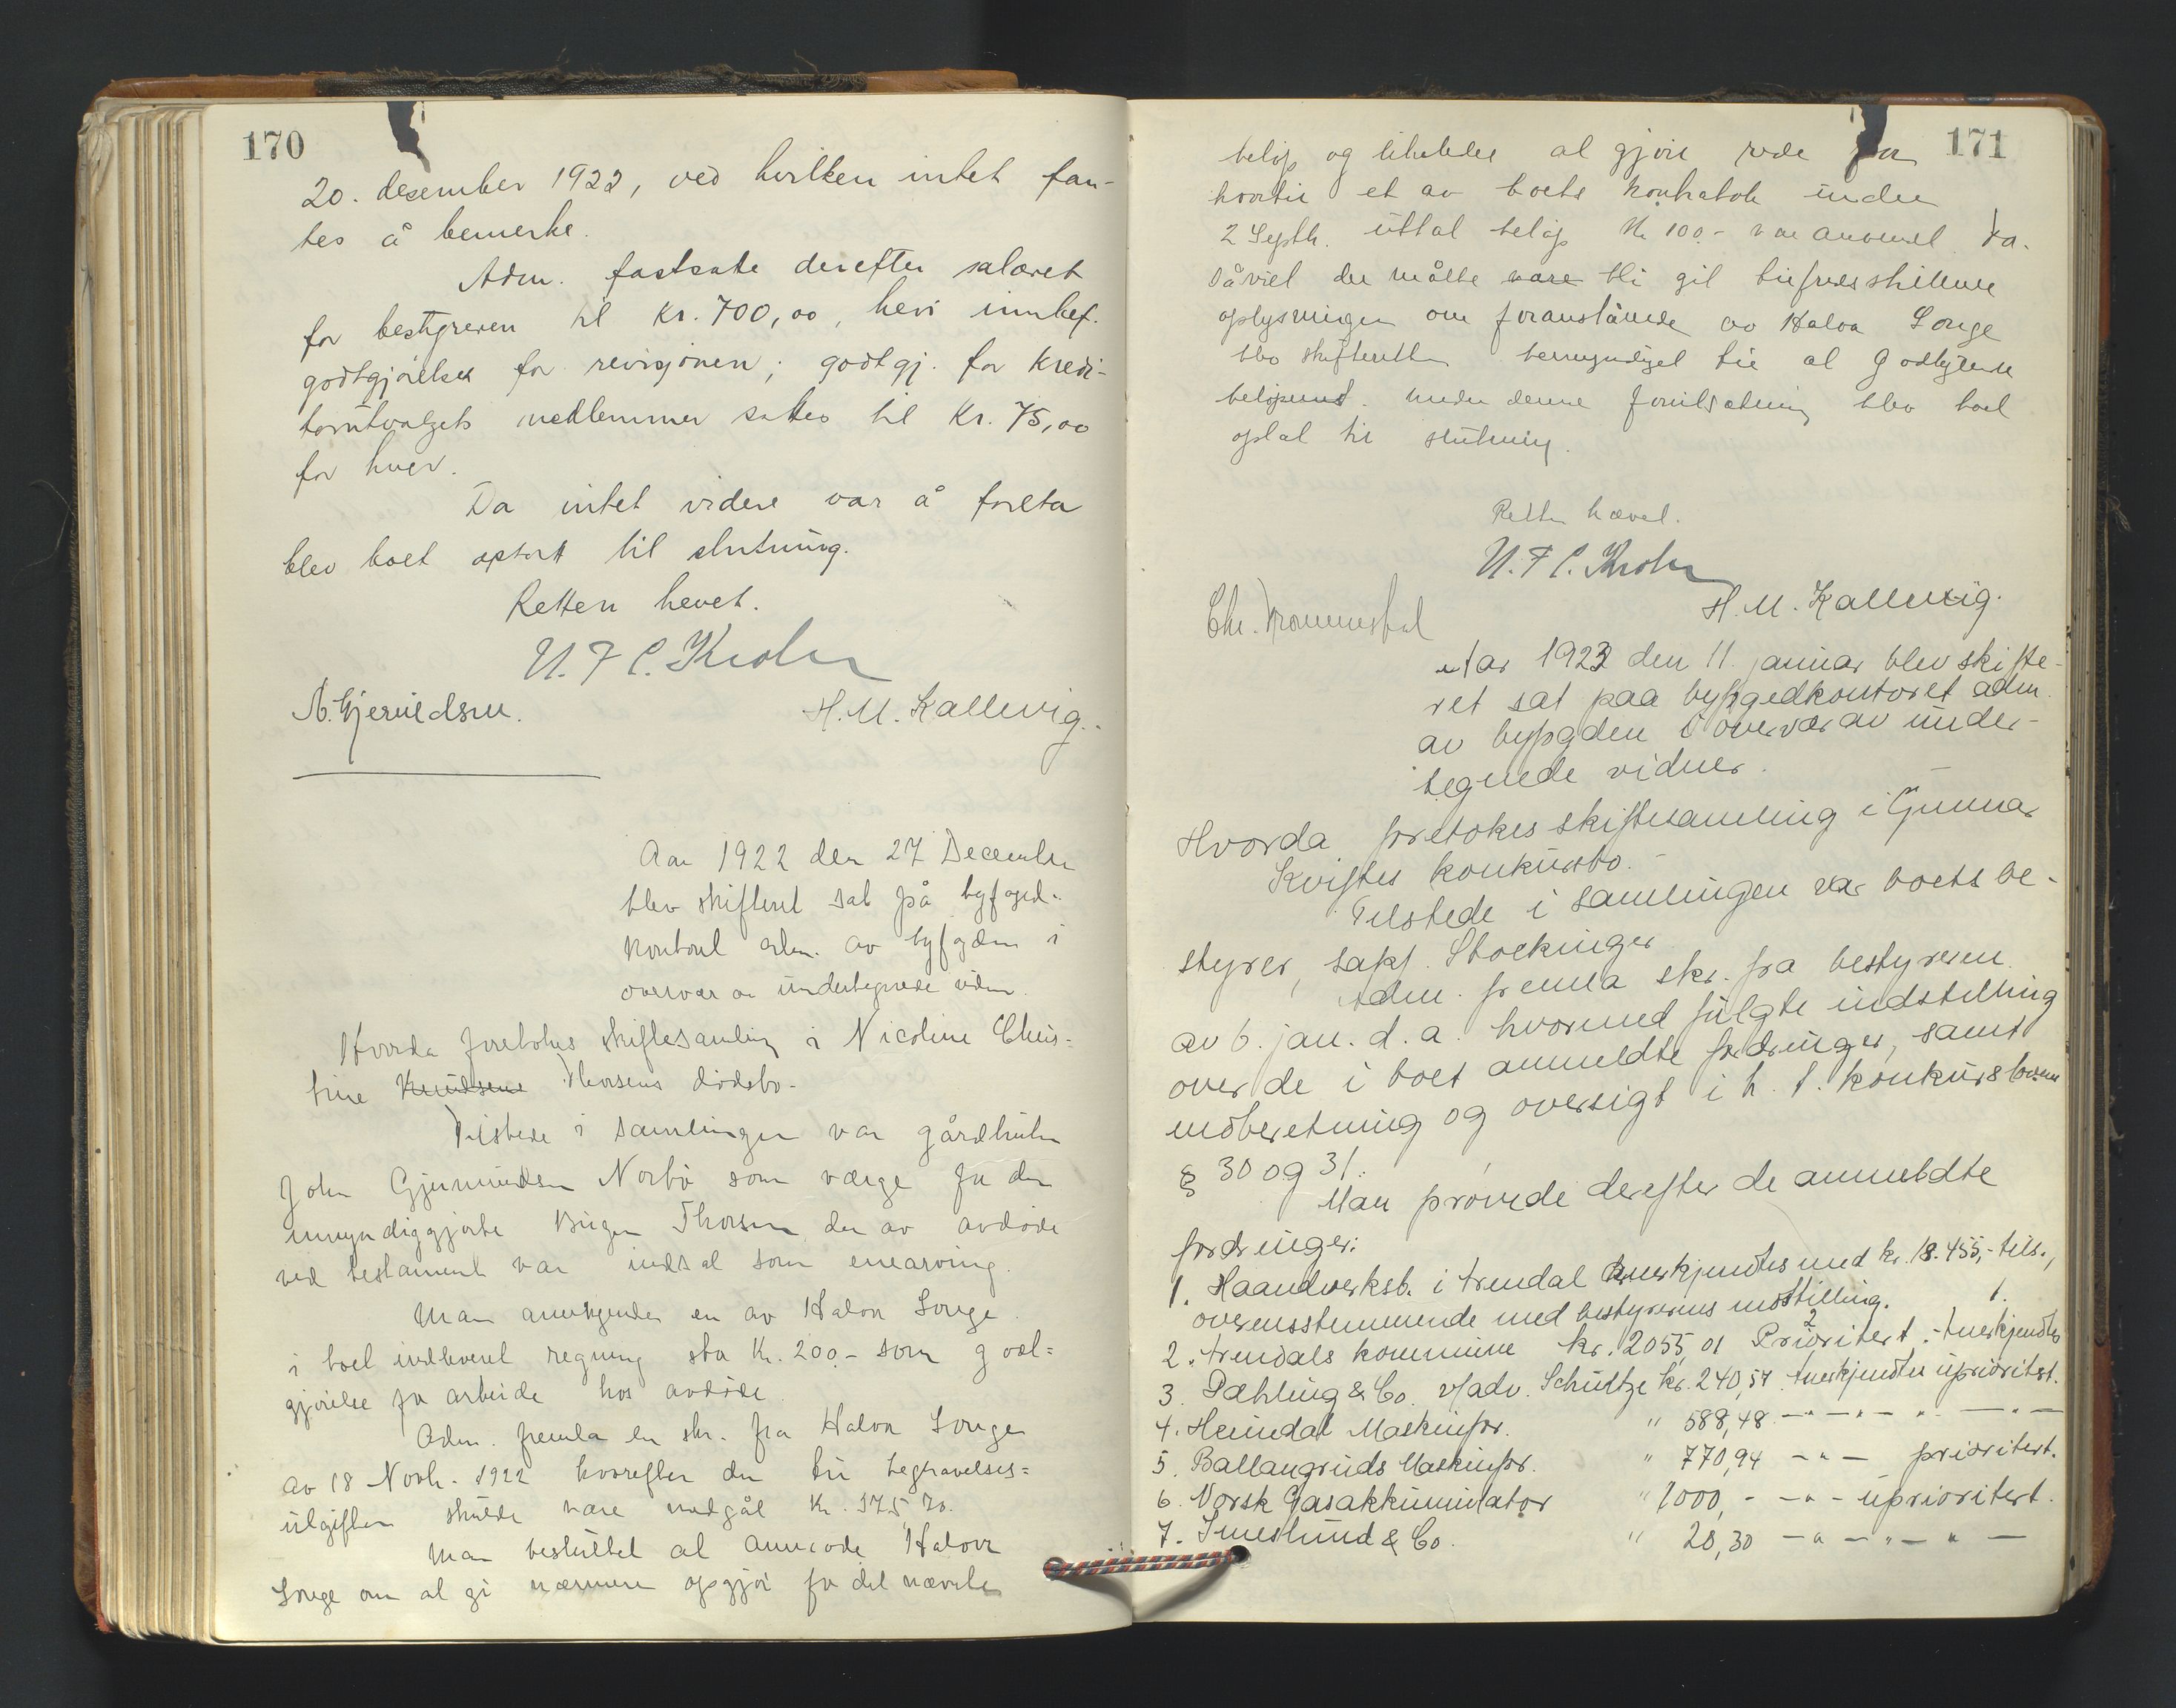 170
20. desember 1922, ved hvilken intet fan-
tes å bemerke.
Adm. fastsate derefter salæret
for bestyreren til Kr. 700,00, heri innbef.
godtgjørelse for revisjonen; godtgj. for kredi-
torutvalgets medlemmer sattes til Kr. 75,00
for hver.
Da intet videre var å foreta
blev boet optatt til slutning.
Retten hevet.
U. F C. Krohn
N. Gjeruldsen.
H. M. Kallevig.
Aar 1922 den 27 December
blev skifteret sat på byfoged-
kontoret adm. av byfogden i
overvær av undertegnede vidner.
Hvorda foretokes skiftesamling i Nicoline Chris-
tine Knudsens Thorsens dødsbo-
Tilstede i samlingen var gårdbruker
John Gjermundsen Norbø som værge for den
umyndiggjorte Birger Thorsen, der av avdøde
ved testament var indsat som enearving.
Man anerkjendte en av Halvor Longe
i boet indleveret regning sto Kr. 200.- som godt=
gjørelse for arbeide hos avdøde
Adm. fremla en skr. fra Halvor Longe
av 18 Novb. 1922 hvorefter der til begravelses=
utgifter skulde være medgåt Kr. 575,70.
Man besluttet at anmode Halvor
Longe om at gi nærmere opgjør for det nævnte
171
beløp og likeledes at gjøre rede for
hvortil et av boets kontrabok under
2 Septb. uttat beløp Kr 100.- var anvendt. Da.
Såvidt der måtte være bli git tilfredsstillende
oplysninger om foranstående av Halvor Longe
blev skifteretten bemyndiget til at godkjende
beløpene. Under denne forutsætning blev boet
optat til slutning.
Retten hævet.
U. F C. Krohn
H. M. Kallevig.
Chr.
Aar 1923 den 11. januar blev skifte-
ret sat paa byfogedkontoret adm.
av byfogden i overvær av under-
tegnede vidner.
Hvorda foretokes skiftesamling i Gunnar
Kvistes konkursbo.-
Tilstede i samlingen var boets be-
styrer, sakf. Stockinger
Adm. fremla skr. fra bestyreren
av 6. jan. d. a. hvormed fulgte indstilling
over de i boet anmeldte fordringer, samt
indberetning og oversigt i h. t. konkurslovens
§ 30 og 31.
Man prøvede derefter de anmeldte
fordringer:
1. Haandverksb. i Arendal Anerkjendtes med kr. 18.455,- tils.,
overensstemmende med bestyrerens indstilling. 1.
2
2. Arendals kommune kr. 2055,01 Prioritert.- Anerkjendtes
3. Dæhling & Co. v/adv. Schultze kr. 240,57. Anerkjendtes uprioritert.
4. Heimdal Maskinfor. " 588,48 - " - " - " - " -
5. Ballangruds Maskinfor. " 770,94 - " - prioritert.
6. Norsk Gasakkumulator " 1000,- - " - uprioritert.
7. & Co. " 28,30 - " - " - " -